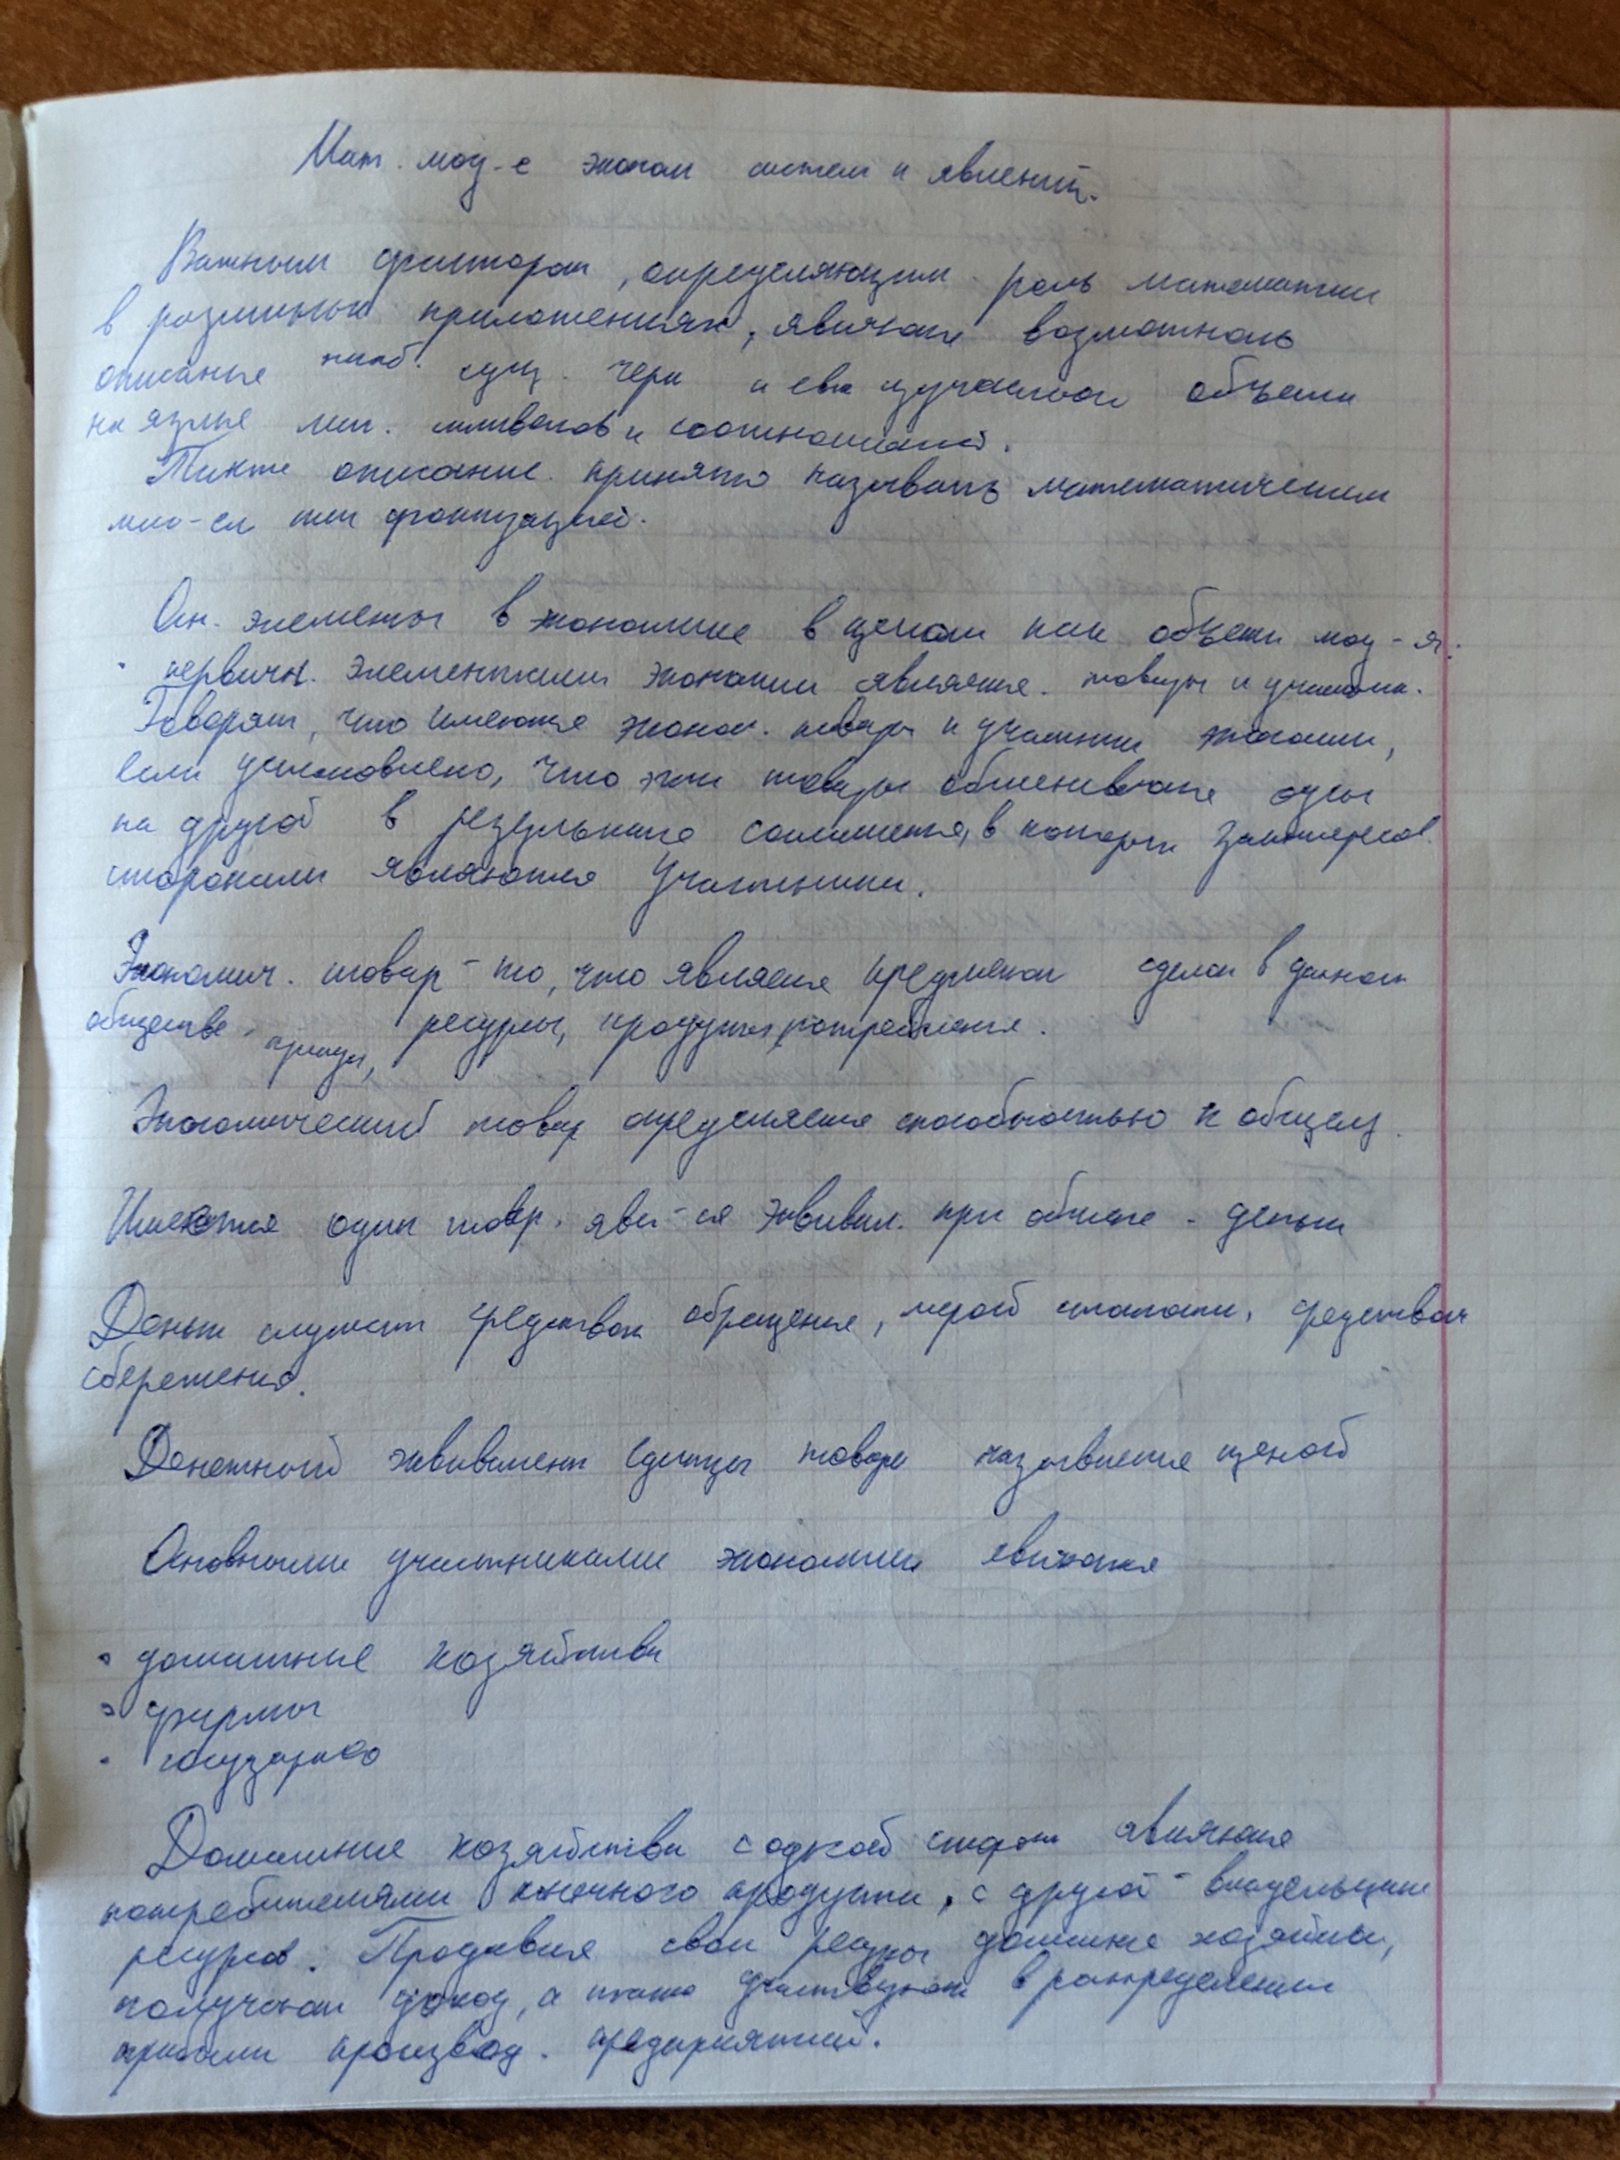 Мат. мод-е эконом систем и явлений.
Важным фактором, определяющим роль математики
в различных приложениях, является возможность
описания наиб. сущ. черт и св-в изучаемого объекта
на языке мат. символов и соотношений.
Такое описание принято называть математическим
мод-ем или формализацией.
Осн. элементы в экономике в целом как объекта мод-я:
· первичн. элементами экономики являются товары и участники.
Говорят, что имеются эконом. товары и участники экономики,
если установлено, что эти товары обмениваются один
на другой в результате соглашения, в котором заинтересов.
сторонами являются участники.
Экономич. товар - то, что является предметом сделок в данном
обществе. ресурсы, продукты потребления.
Экономический товар определяется способностью к обмену.
Имеется один товар. явл-ся эквивал. при обмене - деньги
Деньги служат средством обращения, мерой стоимости, средством
сбережения.
Денежный эквивалент единицы товара называется ценой
Основными участниками экономики являются
• домашние хозяйства
• фирмы
• государство
Домашние хозяйства с одной сторон являются
потребителями конечного продукта, с другой - владельцами
ресурсов. Продавая свои ресурсы домашние хозяйства,
получают доход, а также участвуют в распределении
прибыли производ. предприятий.